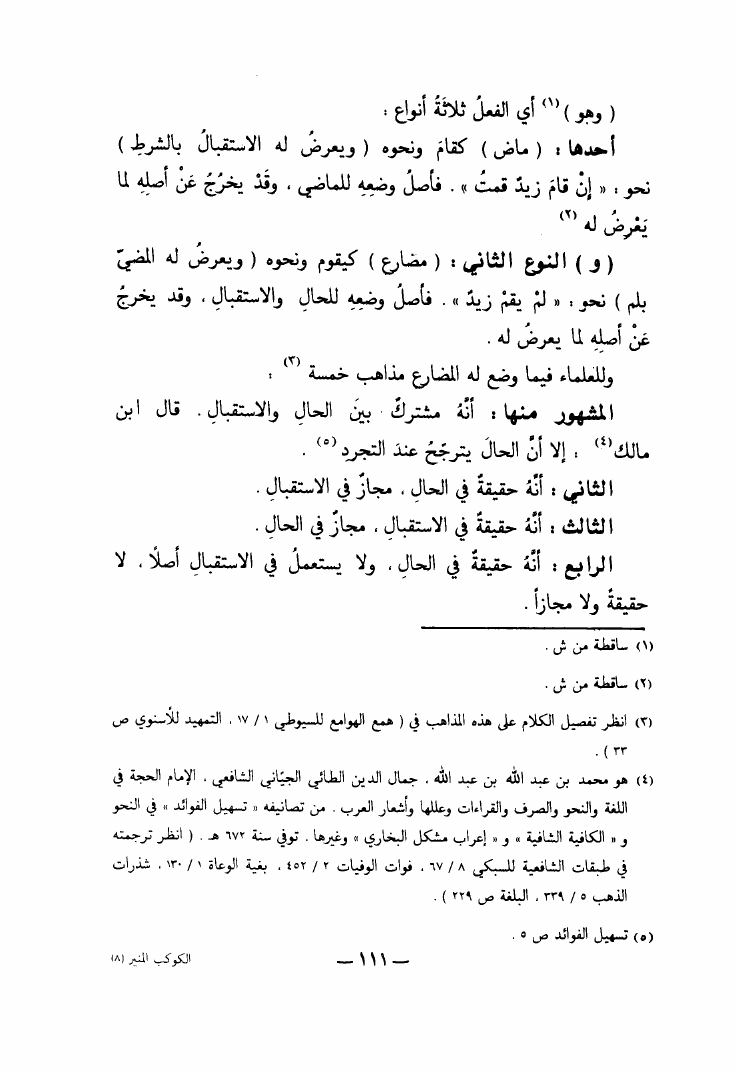 ( وهو )(١) أي الفعلُ ثلاثَةُ أنواع :
أحدها : ( ماض ) كقامَ ونحوه ( ويعرضُ له الاستقبالُ بالشرطِ )
نحو : « إنْ قامَ زيدٌ قمتُ » . فأصلُ وضعِهِ للماضي ، وقَدْ يخرُجُ عَنْ أصلِهِ لما
يَعْرِضُ له (٢) .
( و ) النوع الثاني : ( مضارع ) كيقوم ونحوه ( ويعرضُ له المضيّ
بلم ) نحو : « لمْ يقمْ زيدٌ » . فأصلُ وضعِهِ للحالِ والاستقبالِ ، وقد يخرجُ
عَنْ أصلِهِ لما يعرضُ له .
وللعلماء فيما وضع له المضارع مذاهب خمسة (٣) :
المشهور منها : أنَّهُ مشتركٌ بينَ الحالِ والاستقبالِ . قال ابن
مالك(٤) : إلا أنَّ الحالَ يترجّحُ عندَ التجردِ(٥) .
الثاني : أنَّهُ حقيقةٌ في الحالِ ، مجازٌ في الاستقبالِ .
الثالث : أنَّهُ حقيقةٌ في الاستقبالِ ، مجازٌ في الحالِ .
الرابع : أنَّهُ حقيقةٌ في الحالِ ، ولا يستعملُ في الاستقبالِ أصلًا ، لا
حقيقةً ولا مجازاً .
(١) ساقطة من ش .
(٢) ساقطة من ش .
(٣) انظر تفصيل الكلام على هذه المذاهب في ( همع الهوامع للسيوطي ١ / ١٧ ، التمهيد للأسنوي ص
٣٣ ) .
(٤) هو محمد بن عبد الله بن عبد الله ، جمال الدين الطائي الجيّاني الشافعي ، الإمام الحجة في
اللغة والنحو والصرف والقراءات وعللها وأشعار العرب . من تصانيفه « تسهيل الفوائد » في النحو
و « الكافية الشافية » و « إعراب مشكل البخاري » وغيرها . توفي سنة ٦٧٢ هـ . ( انظر ترجمته
في طبقات الشافعية للسبكي ٨ / ٦٧ ، فوات الوفيات ٢ / ٤٥٢ ، بغية الوعاة ١ / ١٣٠ ، شذرات
الذهب ٥ / ٣٣٩ ، البلغة ص ٢٢٩ ) .
(٥) تسهيل الفوائد ص ٥ .
— ١١١ —
الكوكب المنير (٨)